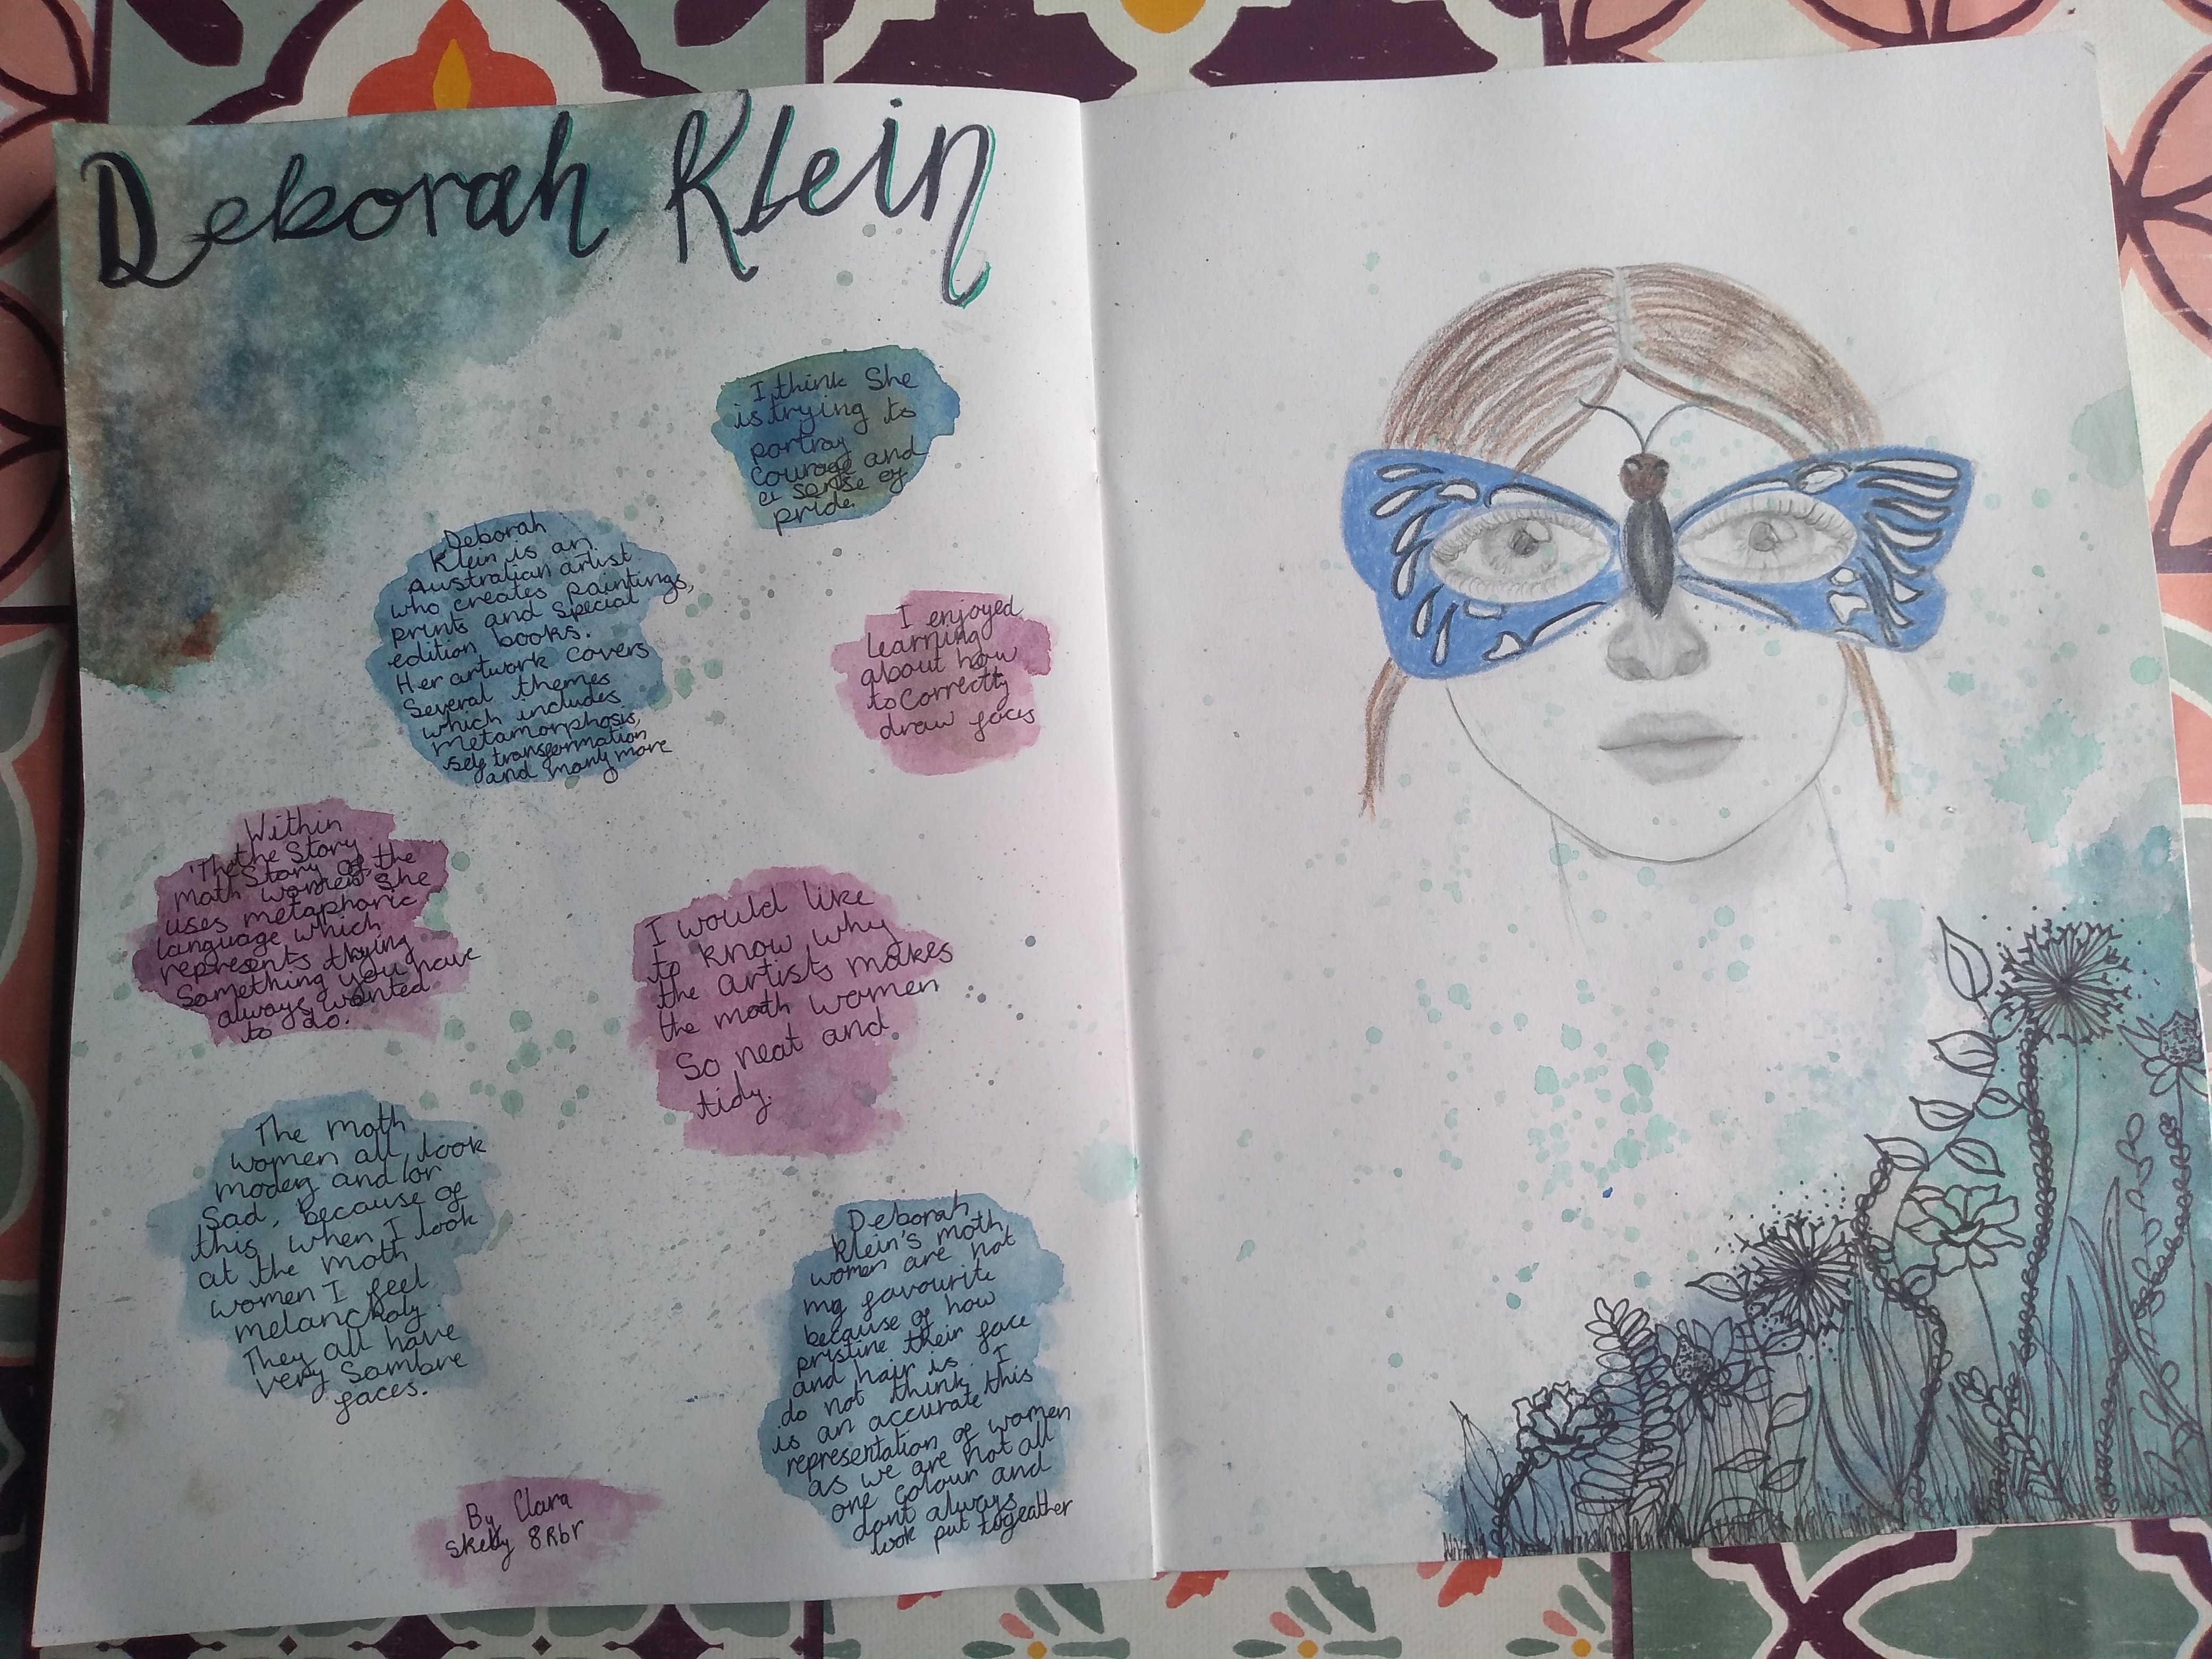 Deborah Klein
I think She
is trying to
portray
Courage and
a sense of
pride.
Deborah
Klein is an
Australian artist
who creates paintings,
prints and special
edition books.
Her artwork covers
Several themes
which includes
metamorphosis,
self transformation
and many more
I enjoyed
learning
about how
to correctly
draw faces
Within
the Story
'The Story of the
moth women' she
uses metaphoric
language which
represents trying
Something you have
always wanted
to do.
I would like
to know why
the artists makes
the moth women
So neat and
tidy.
The moth
women all look
moody and/or
Sad, because of
this, when I look
at the moth
women I feel
melancholy.
They all have
very Sombre
faces.
Deborah
Klein's moth
women are not
my favourite
because of how
pristine their face
and hair is. I
do not think this
is an accurate
representation of women
as we are not all
one colour and
dont always
look put togeather
By Clara
Skelly 8Rbr